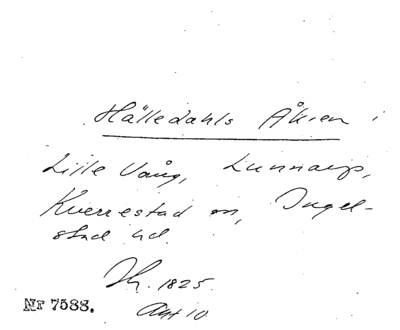 Hälledahls Åkren i
Lille Vång, Lunnarp,
Kverrestad sn, Ingel-
stad hd.
Sk. 1825
Akt 10
Nr 7588.